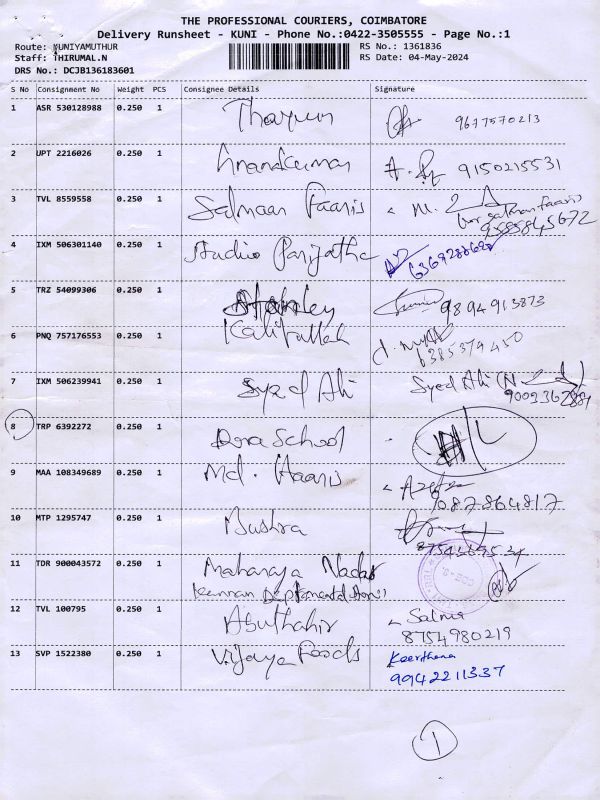 THE PROFESSIONAL COURIERS, COIMBATORE
Delivery Runsheet - KUNI - Phone No.:0422-3505555 - Page No.:1
Route: KUNIYAMUTHUR RS No.: 1361836
Staff: THIRUMAL.N RS Date: 04-May-2024
DRS No.: DCJB136183601
S No Consignment No Weight PCS Consignee Details Signature
1 ASR 530128988 0.250 1 Tharun 9677570213
2 UPT 2216026 0.250 1 Anandkumar 9150215531
3 TVL 8559558 0.250 1 Salmaan Faaris
9585845672
4 IXM 506301140 0.250 1 Audio Parijatha
5 TRZ 54099306 0.250 1 Stanley 9894913873
6 PNQ 757176553 0.250 1 Kalifullah
6385379450
7 IXM 506239941 0.250 1 Syed Ali Syed Ali (N
8 TRP 6392272 0.250 1 Dora School
9 MAA 108349689 0.250 1 Md. Haaris
10 MTP 1295747 0.250 1 Bushra
11 TDR 900043572 0.250 1 Maharaja Nadar
12 TVL 100795 0.250 1 Abuthahir Salma
8754980219
13 SVP 1522380 0.250 1 Vijaya Foods Keerthana
9942211337
1